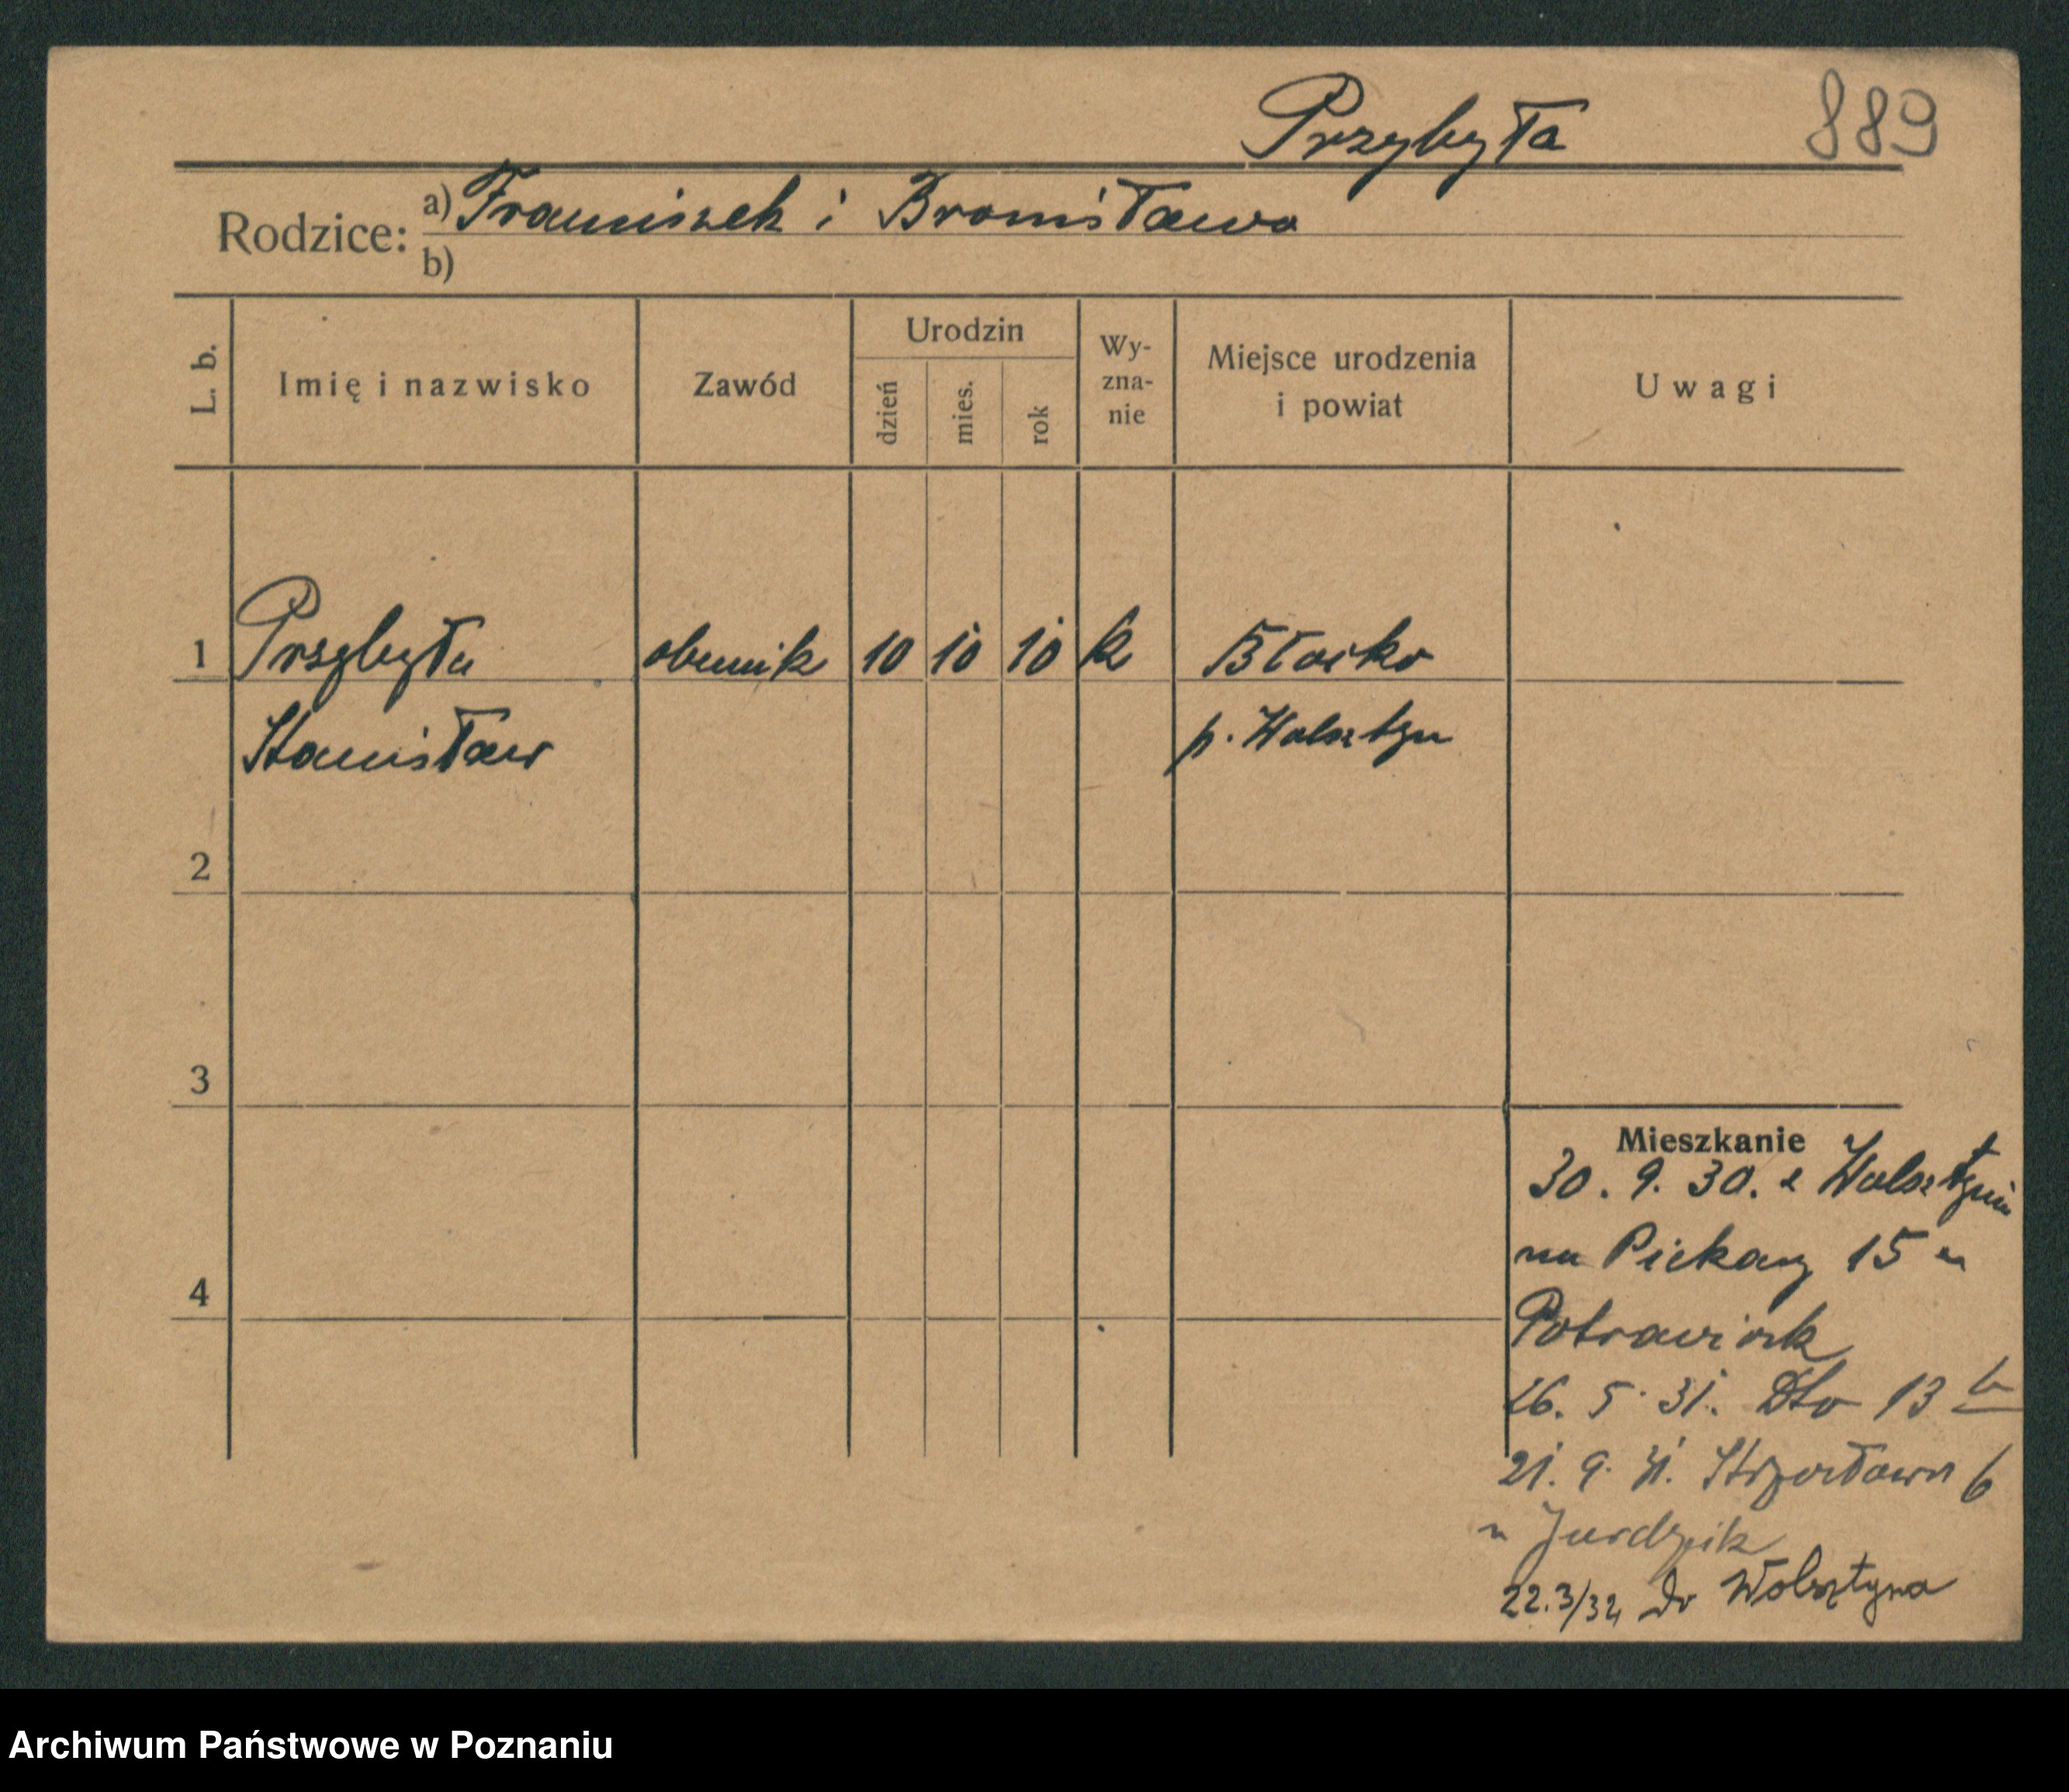 Przybyła 889
Rodzice: a) Franciszek i Bronisława
b)
L. b. Imię i nazwisko Zawód Urodzin dzień mies. rok Wy-zna-nie Miejsce urodzenia i powiat Uwagi
1 Przybyła 10 10 10 k Błocko
Stanisław p. Wolsztyn
2
3
4
Mieszkanie
30. 9. 30. z Wolsztyna
na Piekary 15 u
26. 5. 31. Dto 13
21. 9. 31. 6
u Jurdzik
22.3/32 do Wolsztyna
Archiwum Państwowe w Poznaniu